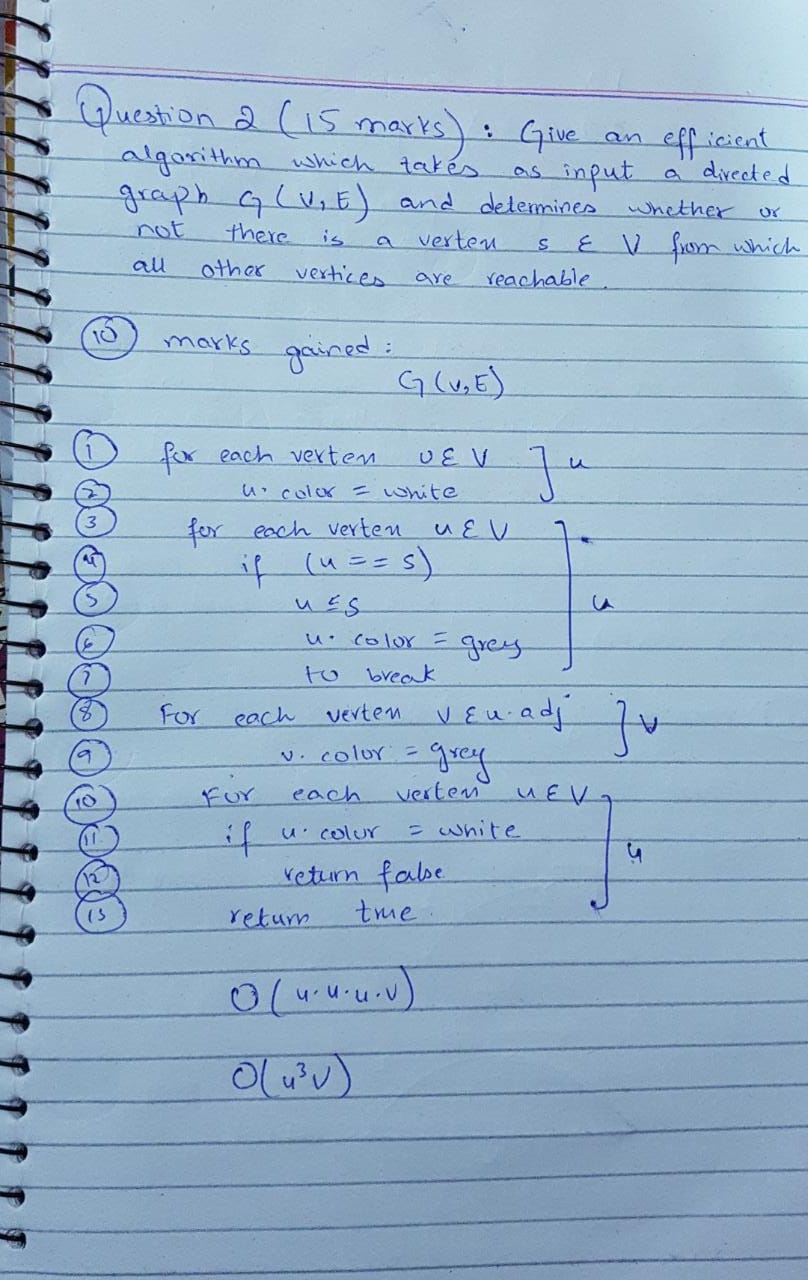 Question 2 (15 marks) : Give an efficient
algorithm which takes as input a directed
graph G(V,E) and determines whether or
not there is a vertex s ε V from which
all other vertices are reachable.
10 marks gained :
G(V,E)
1 for each vertex u ε V ] u
2 u. color = white
3 for each vertex u ε V
4 if (u == s)
5 u ≤ s ] u
6 u. color = grey
7 to break
8 For each vertex v ε u.adj } v
9 v. color = grey
10 For each vertex u ε V
11 if u. color = white ] u
12 return false
13 return true.
O(u.u.u.v)
O(u³v)